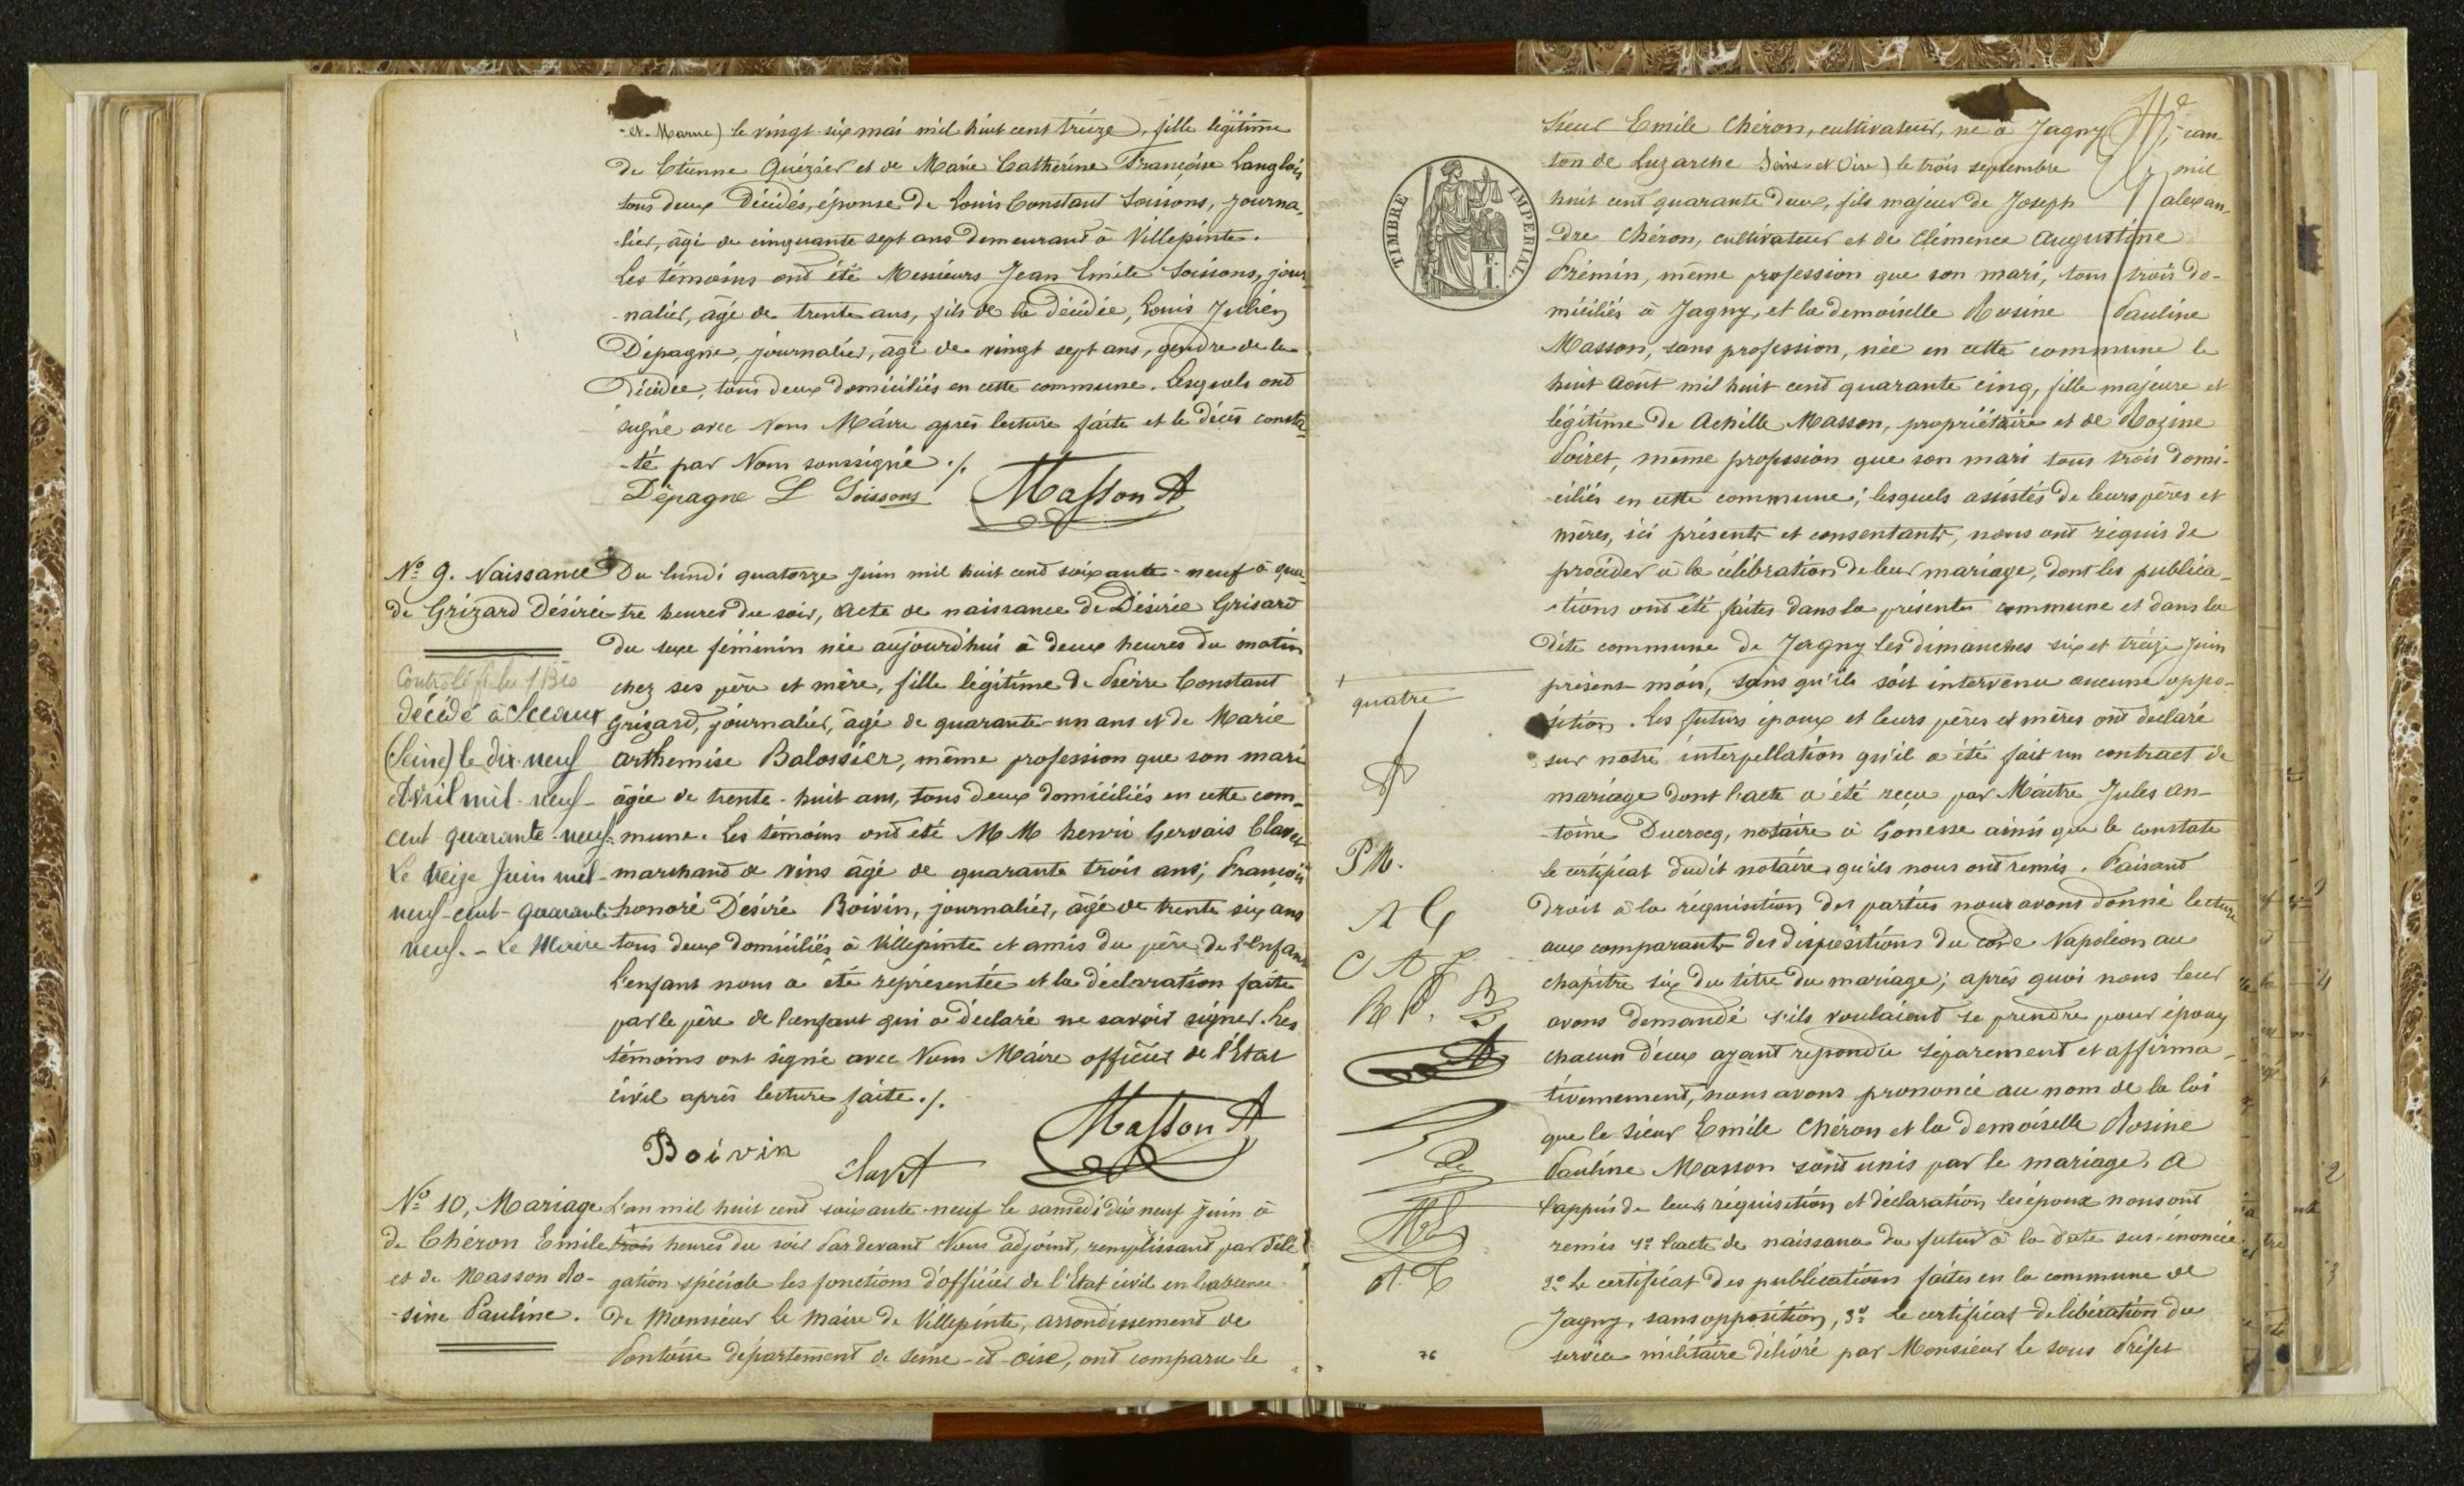 -et-Marne) le vingt six mai mil huit cent treize, fille légitime
de Etienne Quézier et de Marie Catherine Françoise Langlois
tous deux décédés, épouse de Louis Constant Soissons, journa-
-lier, âgé de cinquante sept ans demeurant à Villepinte.
Les témoins ont été Messieurs Jean Emile Soissons, jour-
-nalier, âgé de trente ans, fils de la décédée, Louis Julien
Dépagne, journalier, âgé de vingt sept ans, gendre de la
décédée, tous deux domiciliés en cette commune. Lesquels ont
signé avec Nous Maire après lecture faite et le décès consta-
-té par Nous soussigné ./.
Dépagne L Soissons Masson A
N° 9. Naissance
de Grizard Désirée
décédé à Sceaux
(Seine) le dix-neuf
Avril mil-neuf-
cent quarante-neuf.
Le treize Juin mil-
neuf-cent-quarante
neuf. - Le Maire
Du lundi quatorze juin mil huit cent soixante-neuf à qua-
tre heures du soir, Acte de naissance de Désirée Grisard
du sexe féminin née aujourd'hui à deux heures du matin
chez ses père et mère, fille légitime de Pierre Constant
Grizard, journalier, âgé de quarante-un ans et de Marie
Arthemise Balossier, même profession que son mari
âgée de trente-huit ans, tous deux domiciliés en cette com-
mune. Les témoins ont été MM henri Gervais Clavet
marchand de vins âgé de quarante trois ans; François
honoré Désiré Boivin, journalier, âgé de trente six ans
tous deux domiciliés à Villepinte et amis du père de l'Enfant
L'enfant nous a été représentée et la déclaration faite
par le père de l'enfant qui a déclaré ne savoir signer. Les
témoins ont signé avec Nous Maire officier de l'Etat
civil après lecture faite ./.
Boivin Clavet Masson A
N° 10, Mariage
de Chéron Emile
et de Masson Ro-
-sine Pauline.
L'an mil huit cent soixante-neuf le samedi dix neuf juin à
trois heures du soir Par devant Nous adjoint, remplissant par délé
gation spéciale les fonctions d'officier de l'Etat civil en l'absence
de Monsieur le Maire de Villepinte, arrondissement de
Pontoise département de Seine-et-Oise, ont comparu le
Sieur Emile Chéron, cultivateur, né à Jagny, can
ton de Luzarche Seine-et-Oise) le trois septembre mil
huit cent quarante deux, fils majeur de Joseph alexan-
-dre Chéron, cultivateur et de Clémence Augustine
Frémin, même profession que son mari, tous trois do-
miciliés à Jagny, et la demoiselle Rosine Pauline
Masson, sans profession, née en cette commune le
huit Août mil huit cent quarante cinq, fille majeure et
légitime de Achille Masson, propriétaire et de Rozine
Poiret, même profession que son mari tous trois domi-
-ciliés en cette commune; lesquels assistés de leurs pères et
mères, ici présents et consentants, nous ont requis de
procéder à la célébration de leur mariage, dont les publica-
-tions ont été faites dans la présente commune et dans la
dite commune de Jagny les dimanches six et treize juin
présent mois, sans qu'ils soit intervenu aucune oppo-
sition. Les futurs époux et leurs pères et mères ont déclaré
sur notre interpellation qu'il a été fait un contract de
mariage dont l'acte a été reçu par Maître Jules An-
-toine Ducrocq, notaire à Gonesse ainsi que le constate
le certificat dudit notaire qu'ils nous ont remis. Faisant
droit à la réquisition des parties nous avons donné lecture
aux comparants des dispositions du code Napoléon au
chapitre six du titre du mariage; après quoi nous leur
avons demandé s'ils voulaient se prendre pour époux
chacun d'eux ayant répondu séparement et affirma-
tivement, nous avons prononcé au nom de la loi
que le sieur Emile Chéron et la demoiselle Rosine
Pauline Masson sont unis par le mariage. A
l'appui de leurs réquisition et déclaration les époux nous ont
remis 1° l'acte de naissance du futur à la date sus-énoncée
2° Le certificat des publications faites en la commune de
Jagny, sans opposition, 3° Le certificat de libération du
service militaire délivré par Monsieur le sous Préfet
TIMBRE IMPERIAL.
quatre
P M.
76